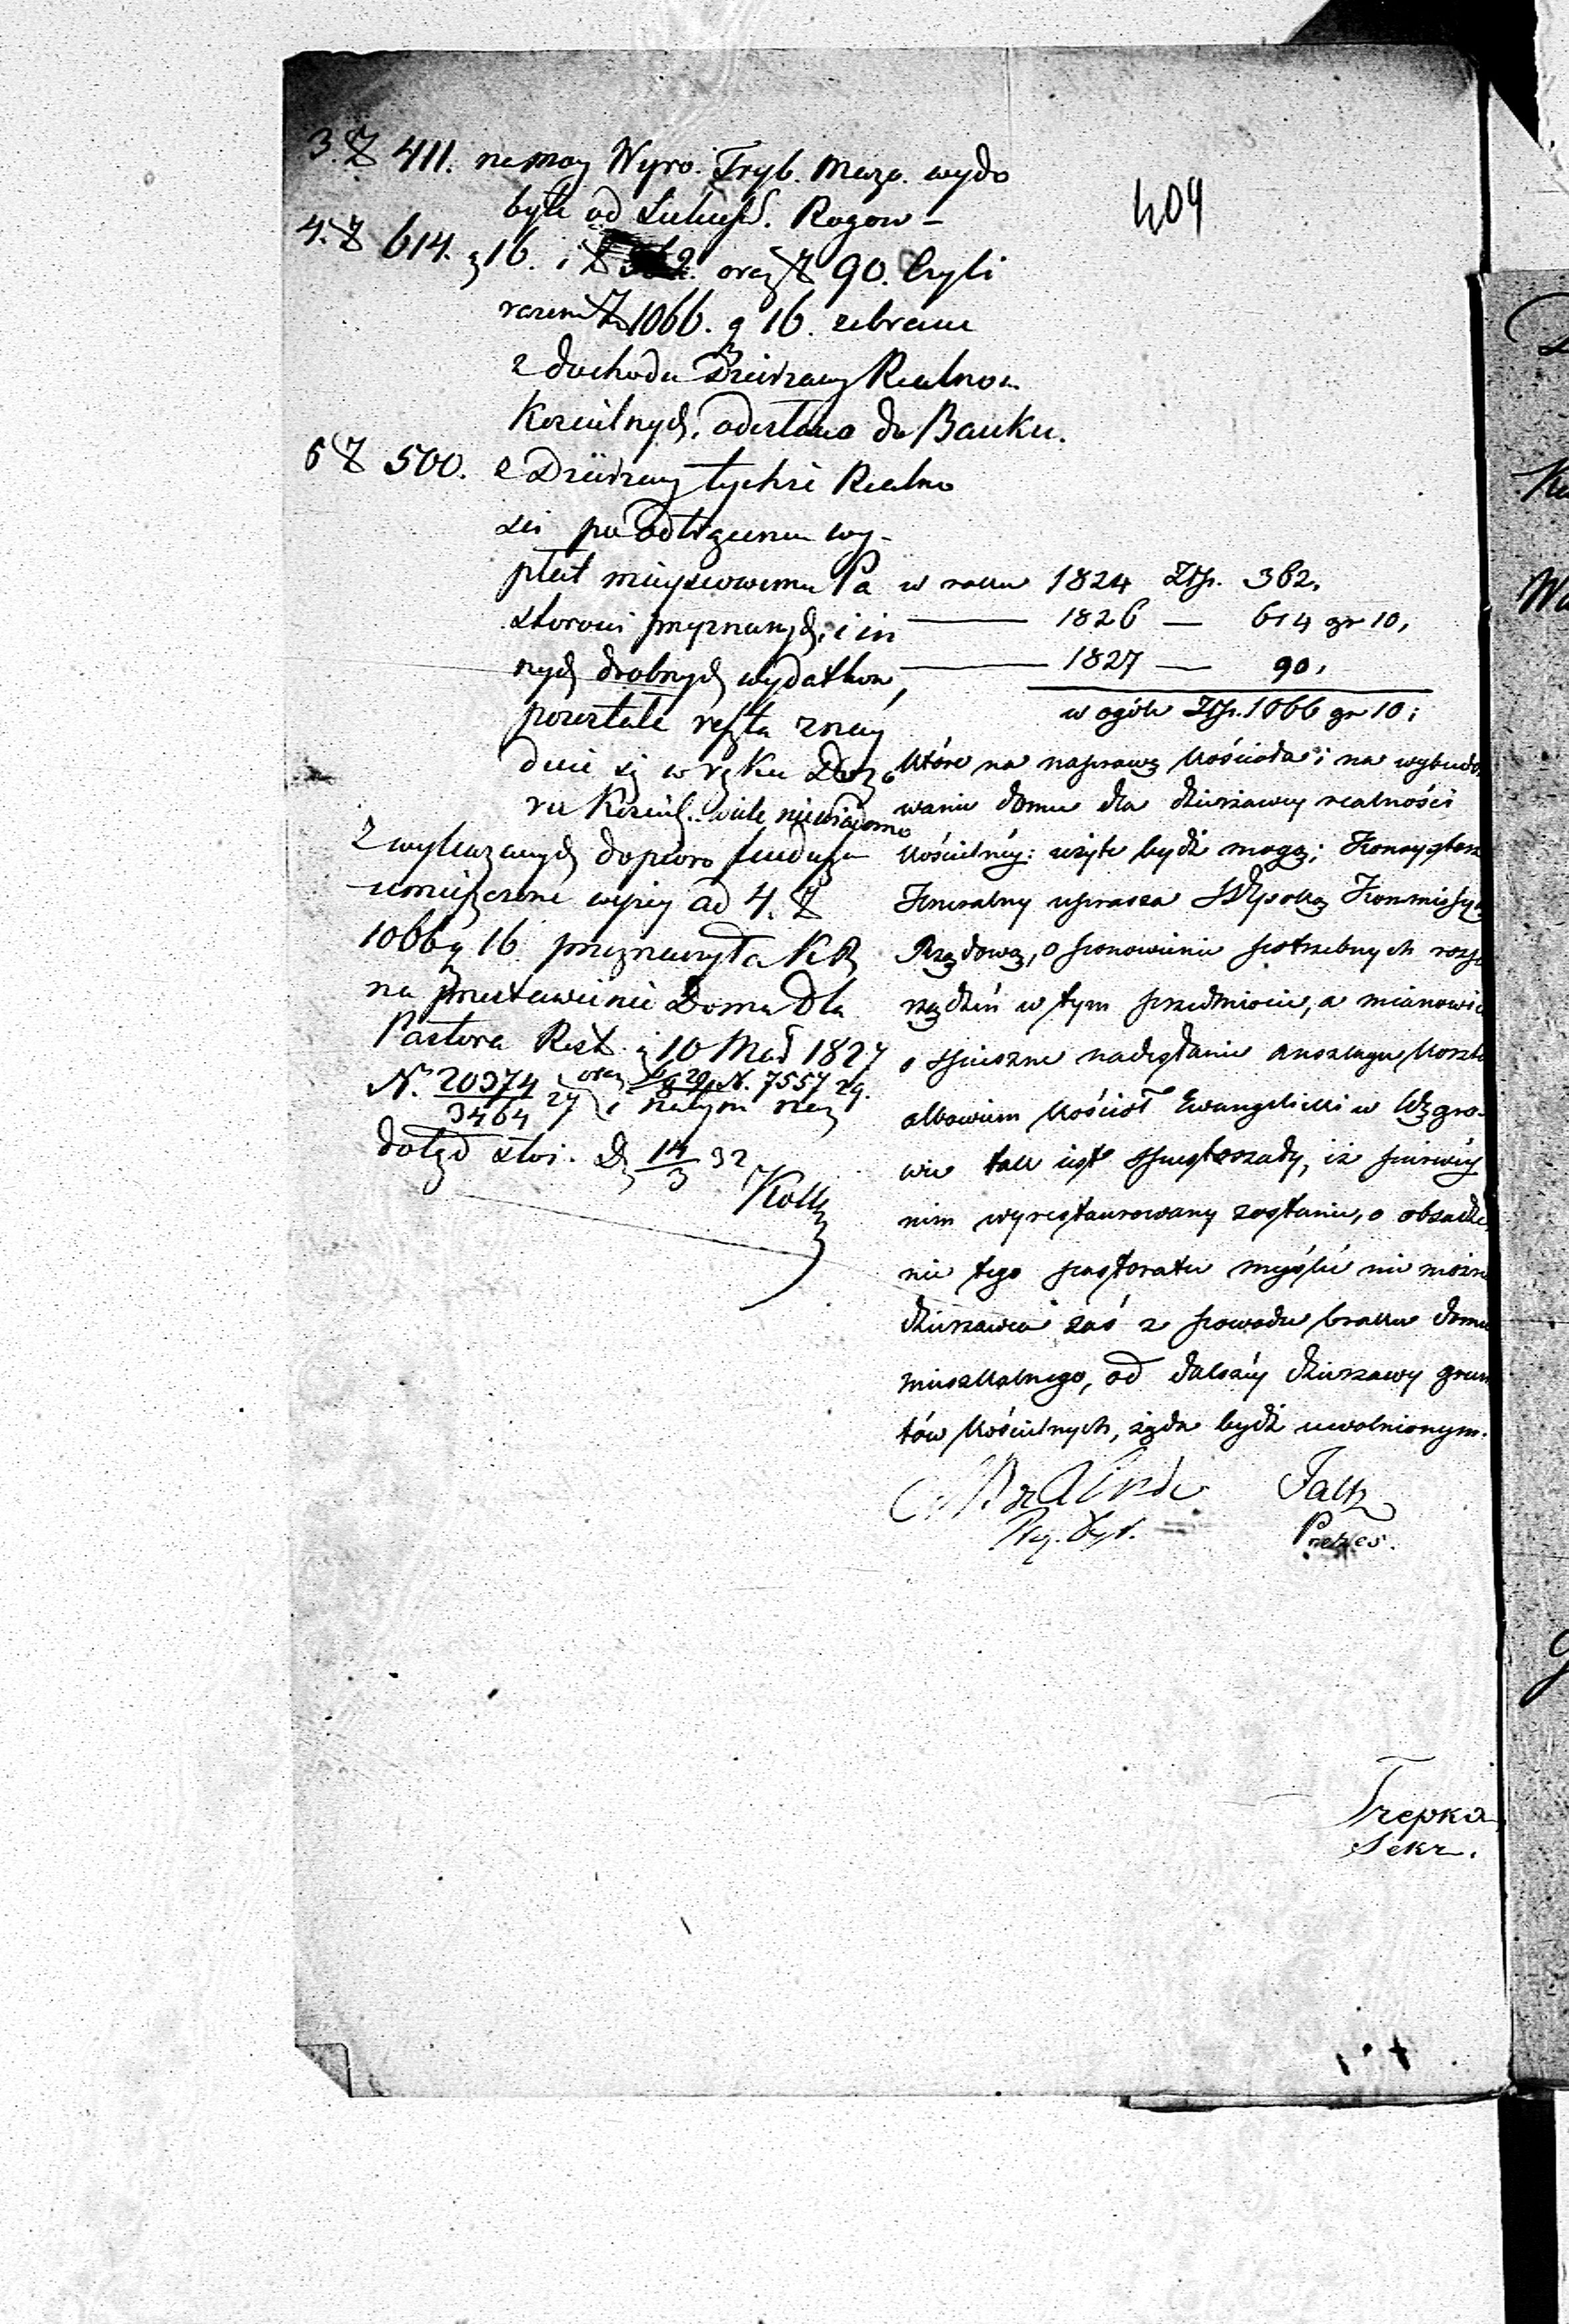 409
3. Z 411. na mocy Wyro. Tryb. Mazo. wydo
byte od Rogow -
4. Z 614. g 16. i Z oraz Z 90. Czyli
razem Z 1066. g 16. zebrane
z dochodu Dzierzawy Realnos.
Koscielnych, odesłano do Banku.
5 Z 500. z Dzierzawy tychże Realno
sci po odtrąceniu wy-
płat mieyscowemu Pa
storowi przyznanych, i in
nych drobnych wydatkow,
pozostała reszta znay
duie się w ręku Dozo
ru Koscieln. wiele niewiadomo
Z wykazanych dopiero funduszu
umieszczone wyżey ad 4. Z
1066 g 16. przeznaczyła KR
na przestawienie Domu dla
Pastora Resk. z 10 Maja 1827
N. 20374/3464 27 oraz N. 7557 29.
i na tym rzecz
dotąd stoi. D 14/3 32
w roku 1824 Złp. 362.
——— 1826 — 614 gr 10,
——— 1827 — 90,
w ogóle Złp. 1066 gr 10;
które na naprawę kościoła i na wybudo
wanie domu dla dzierżawcy realności
kościelnéy: użyte bydź mogą; Konsystorz
Jeneralny uprasza Wysoką Kommissyą
Rządową, o ponowienie potrzebnych rozpo
rządzeń w tym przedmiocie, a mianowicie
o spieszne nadesłanie anszlagu koszto
albowiem kościoł Ewangelicki w Węgro-
wie tak iest spustoszały, iż pierwéy
nim wyrestaurowany zostanie, o obsadze
nie tego pastoratu myśléć nie można
dzierżawca zaś z powodu braku domu
mieszkalnego, od dalszéy dzierżawy grun
tów kościelnych, żąda bydź uwolnionym.
Falz
Prezes.
Trepka
Sekr.